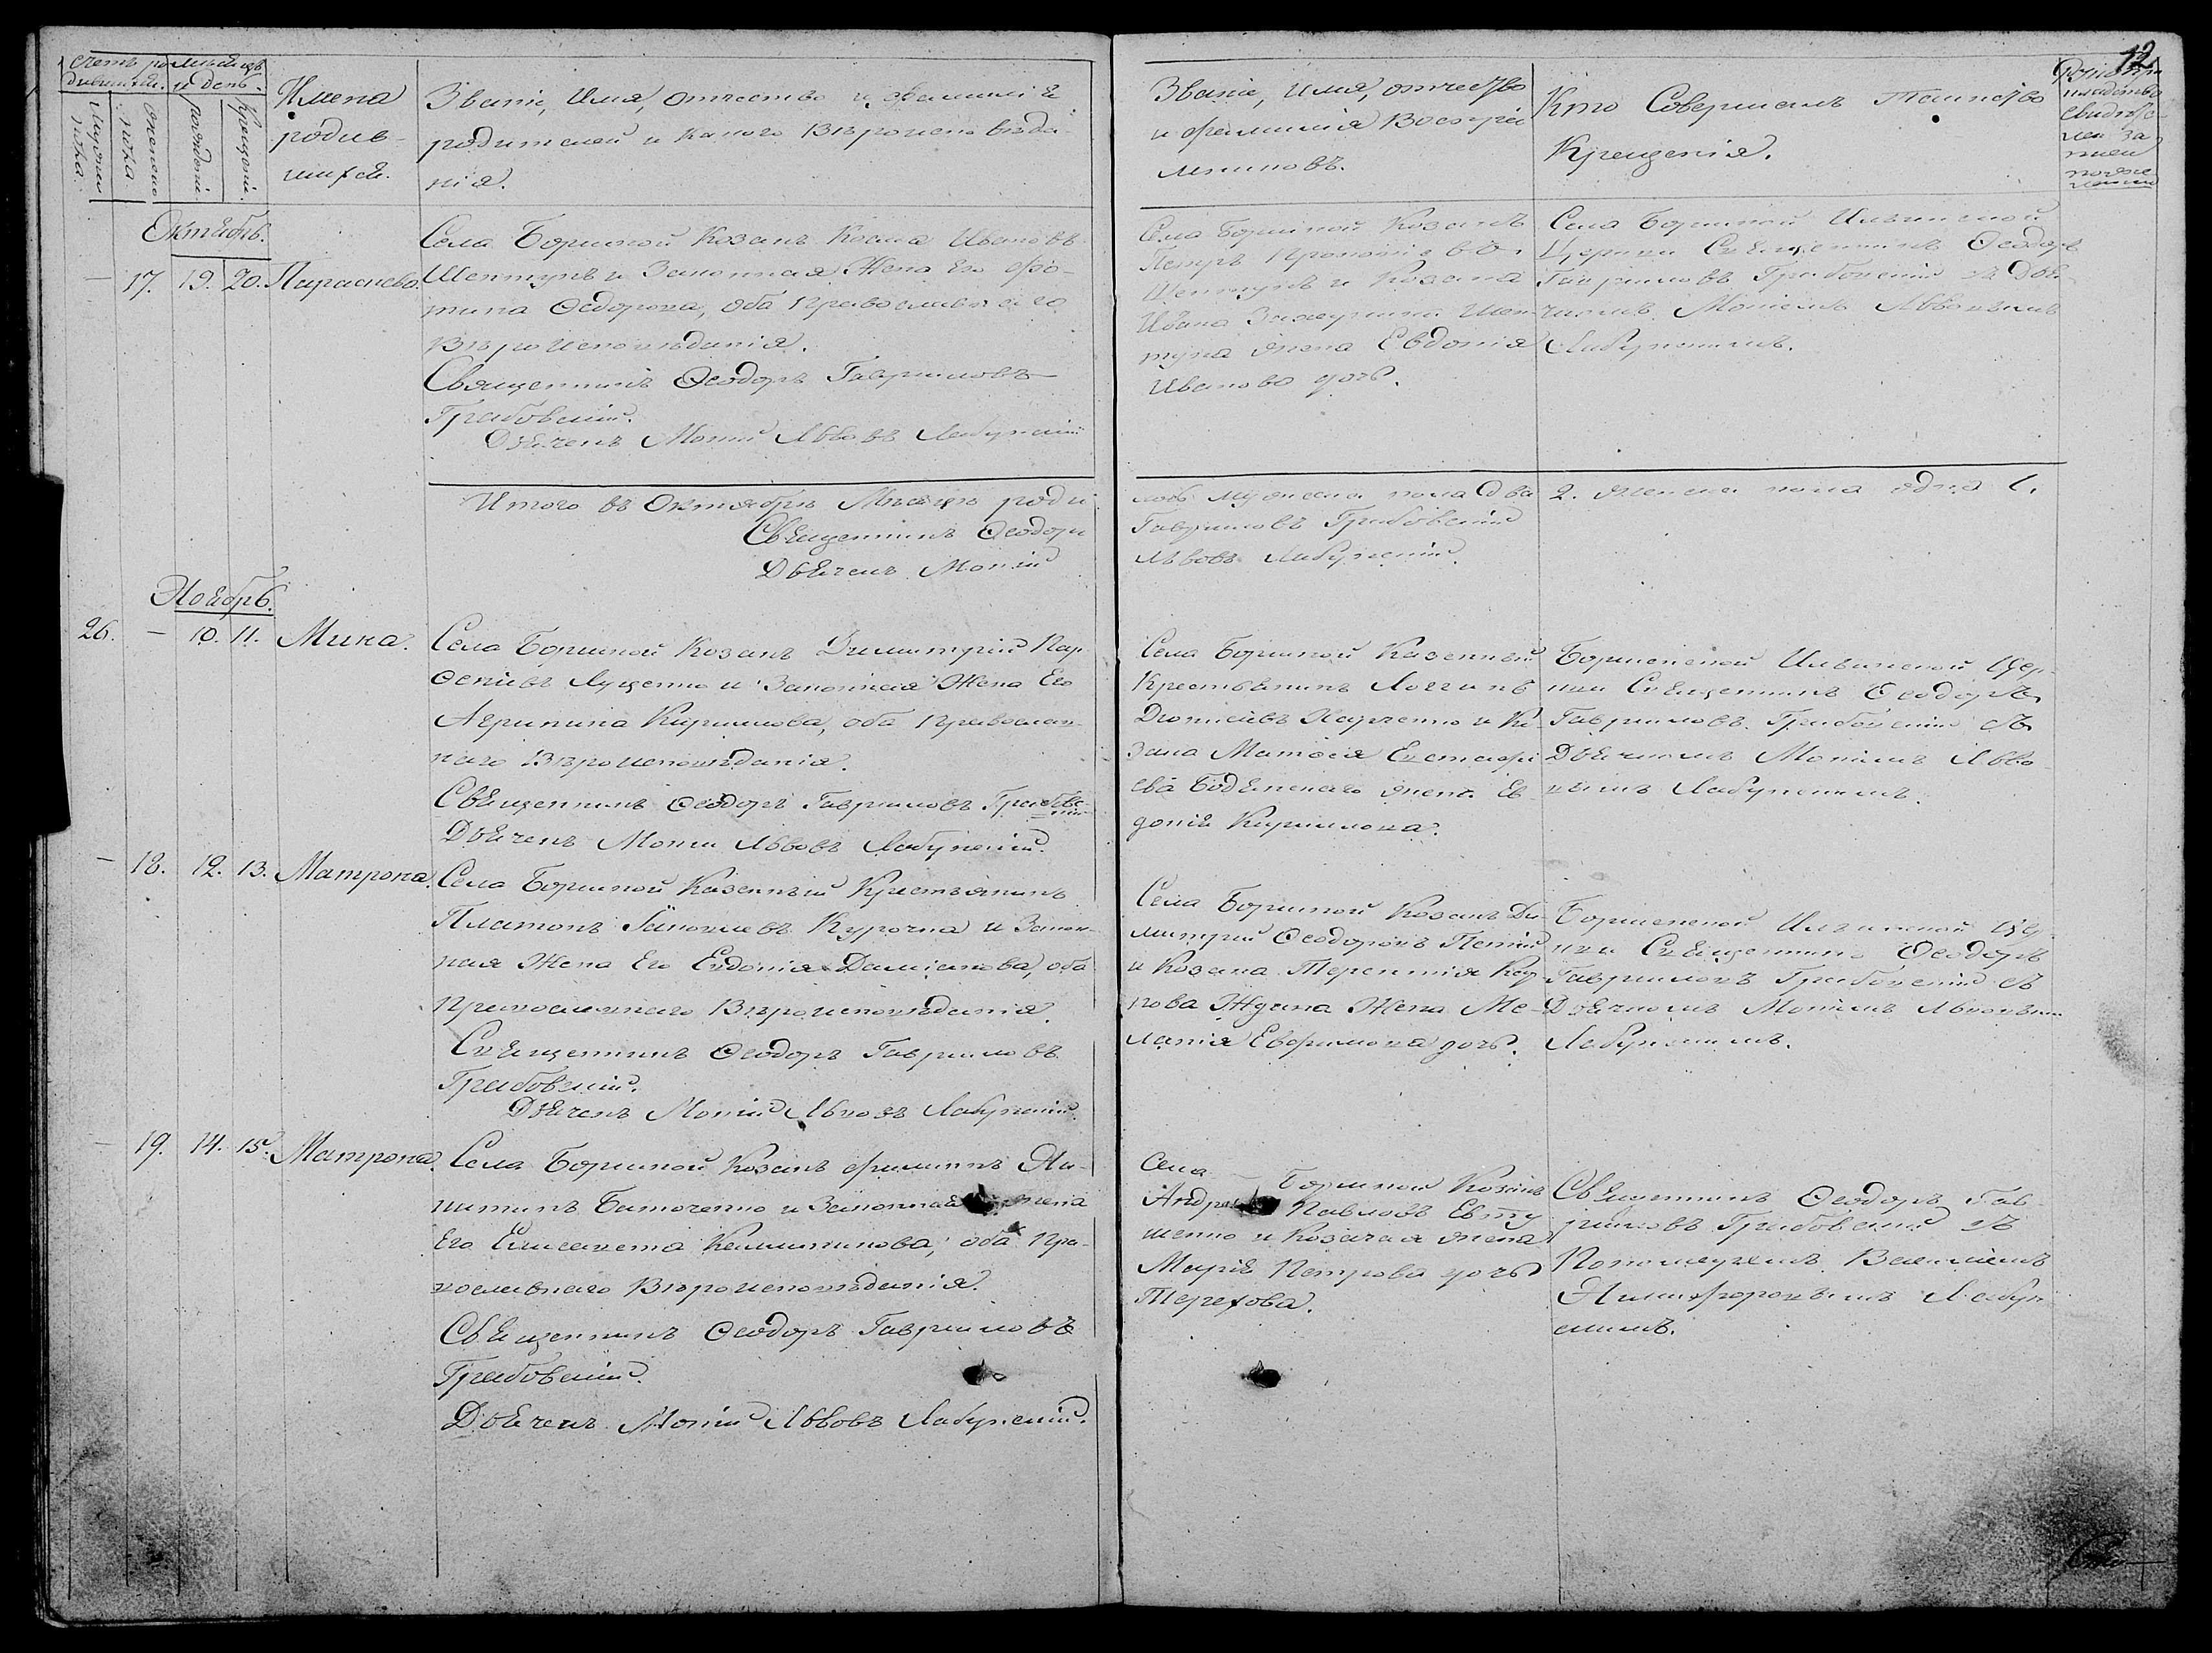 12
Счетъ родившихся.
Мѣсяцъ и день.
Мужеска пола.
Женска пола.
Рожденія.
Крещенія.
Имена
родив-
шихся.
Званіе, Имя, отчество и фамилія
родителей и какого Вѣроисповѣда-
нія.
Званіе, имя, отчество
и фамилія Воспріе-
мниковъ.
Кто Совершалъ Таинство
Крещенія.
Октябрь.
— 17. 19. 20. Параскева.
Села Боршной Козакъ Косма Ивановъ
Шептунъ и Законная Жена Его Фо-
тина Федорова, оба Православнаго
Вѣроисповѣданія.
Священникъ Ѳеодоръ Гавриловъ
Грабовскій.
Дьячекъ Мокій Львовъ Лабунскій
Села Боршной Козакъ
Петръ
Шептунъ и Козака
Ивана Шеп-
туна жена Евдокія
Иванова дочь.
Села Боршной Ильинской
Церкви Священникъ Ѳеодоръ
Гавриловъ Грабовскій съ Дья-
чкомъ Мокіемъ Львовымъ
Лабунскимъ.
Итого въ Октябрѣ Мѣсяцѣ роди
лось мужеска пола два 2. женска пола одна 1.
Священникъ Ѳеодоръ
Гавриловъ Грабовскій
Дьячекъ Мокій
Львовъ Лабунскій.
Ноябрь.
26. — 10. 11. Мина.
Села Боршной Козакъ Димитрій Кар
Луценко и Законная Жена Его
Агрипина Кирилова, оба Православ-
наго Вѣроисповѣданія.
Священникъ Ѳеодоръ Гавриловъ Грабовскій
Дьячекъ Мокій Львовъ Лабунскій.
Села Боршной Казенный
Крестьянинъ Логгинъ
Харченко и Ко-
зака Матѳея Евстафі
ева жена Ев-
докія Кирилова.
Боршенской Ильинской Цер-
кви Священникъ Ѳеодоръ
Гавриловъ Грабовскій съ
Дьячкомъ Мокіемъ Льво-
вымъ Лабунскимъ.
— 18. 12. 13. Матрона.
Села Боршной Казенный Крестьянинъ
Платонъ Курочка и Закон-
ная Жена Его Евдокія Даміанова, оба
Православнаго Вѣроисповѣданія.
Священникъ Ѳеодоръ Гавриловъ
Грабовскій.
Дьячекъ Мокій Львовъ Лабунскій.
Села Боршной Козакъ Ди-
митрій Ѳеодоровъ
и Козака Терентія Кар-
пова Ждана Жена Ме-
ланія Евфимова дочь.
Боршенской Ильинской Цер-
кви Священникъ Ѳеодоръ
Гавриловъ Грабовскій съ
Дьячкомъ Мокіемъ Львовымъ
Лабунскимъ.
— 19. 14. 15. Матрона.
Села Боршной Козакъ Филиппъ Ни-
китинъ Баточенко и Законная жена
Его Елисавета Каллиникова, оба Пра-
вославнаго Вѣроисповѣданія.
Священникъ Ѳеодоръ Гавриловъ
Грабовскій.
Дьячекъ Мокій Львовъ Лабунскій.
Села Боршной Козакъ
Андрей Павловъ Евту
шенко и Козачая жена
Марія Петрова дочь
Терехова.
Священникъ Ѳеодоръ Гав-
риловъ Грабовскій съ
Пономаремъ Василіемъ
Никифоровымъ Лабун
скимъ.